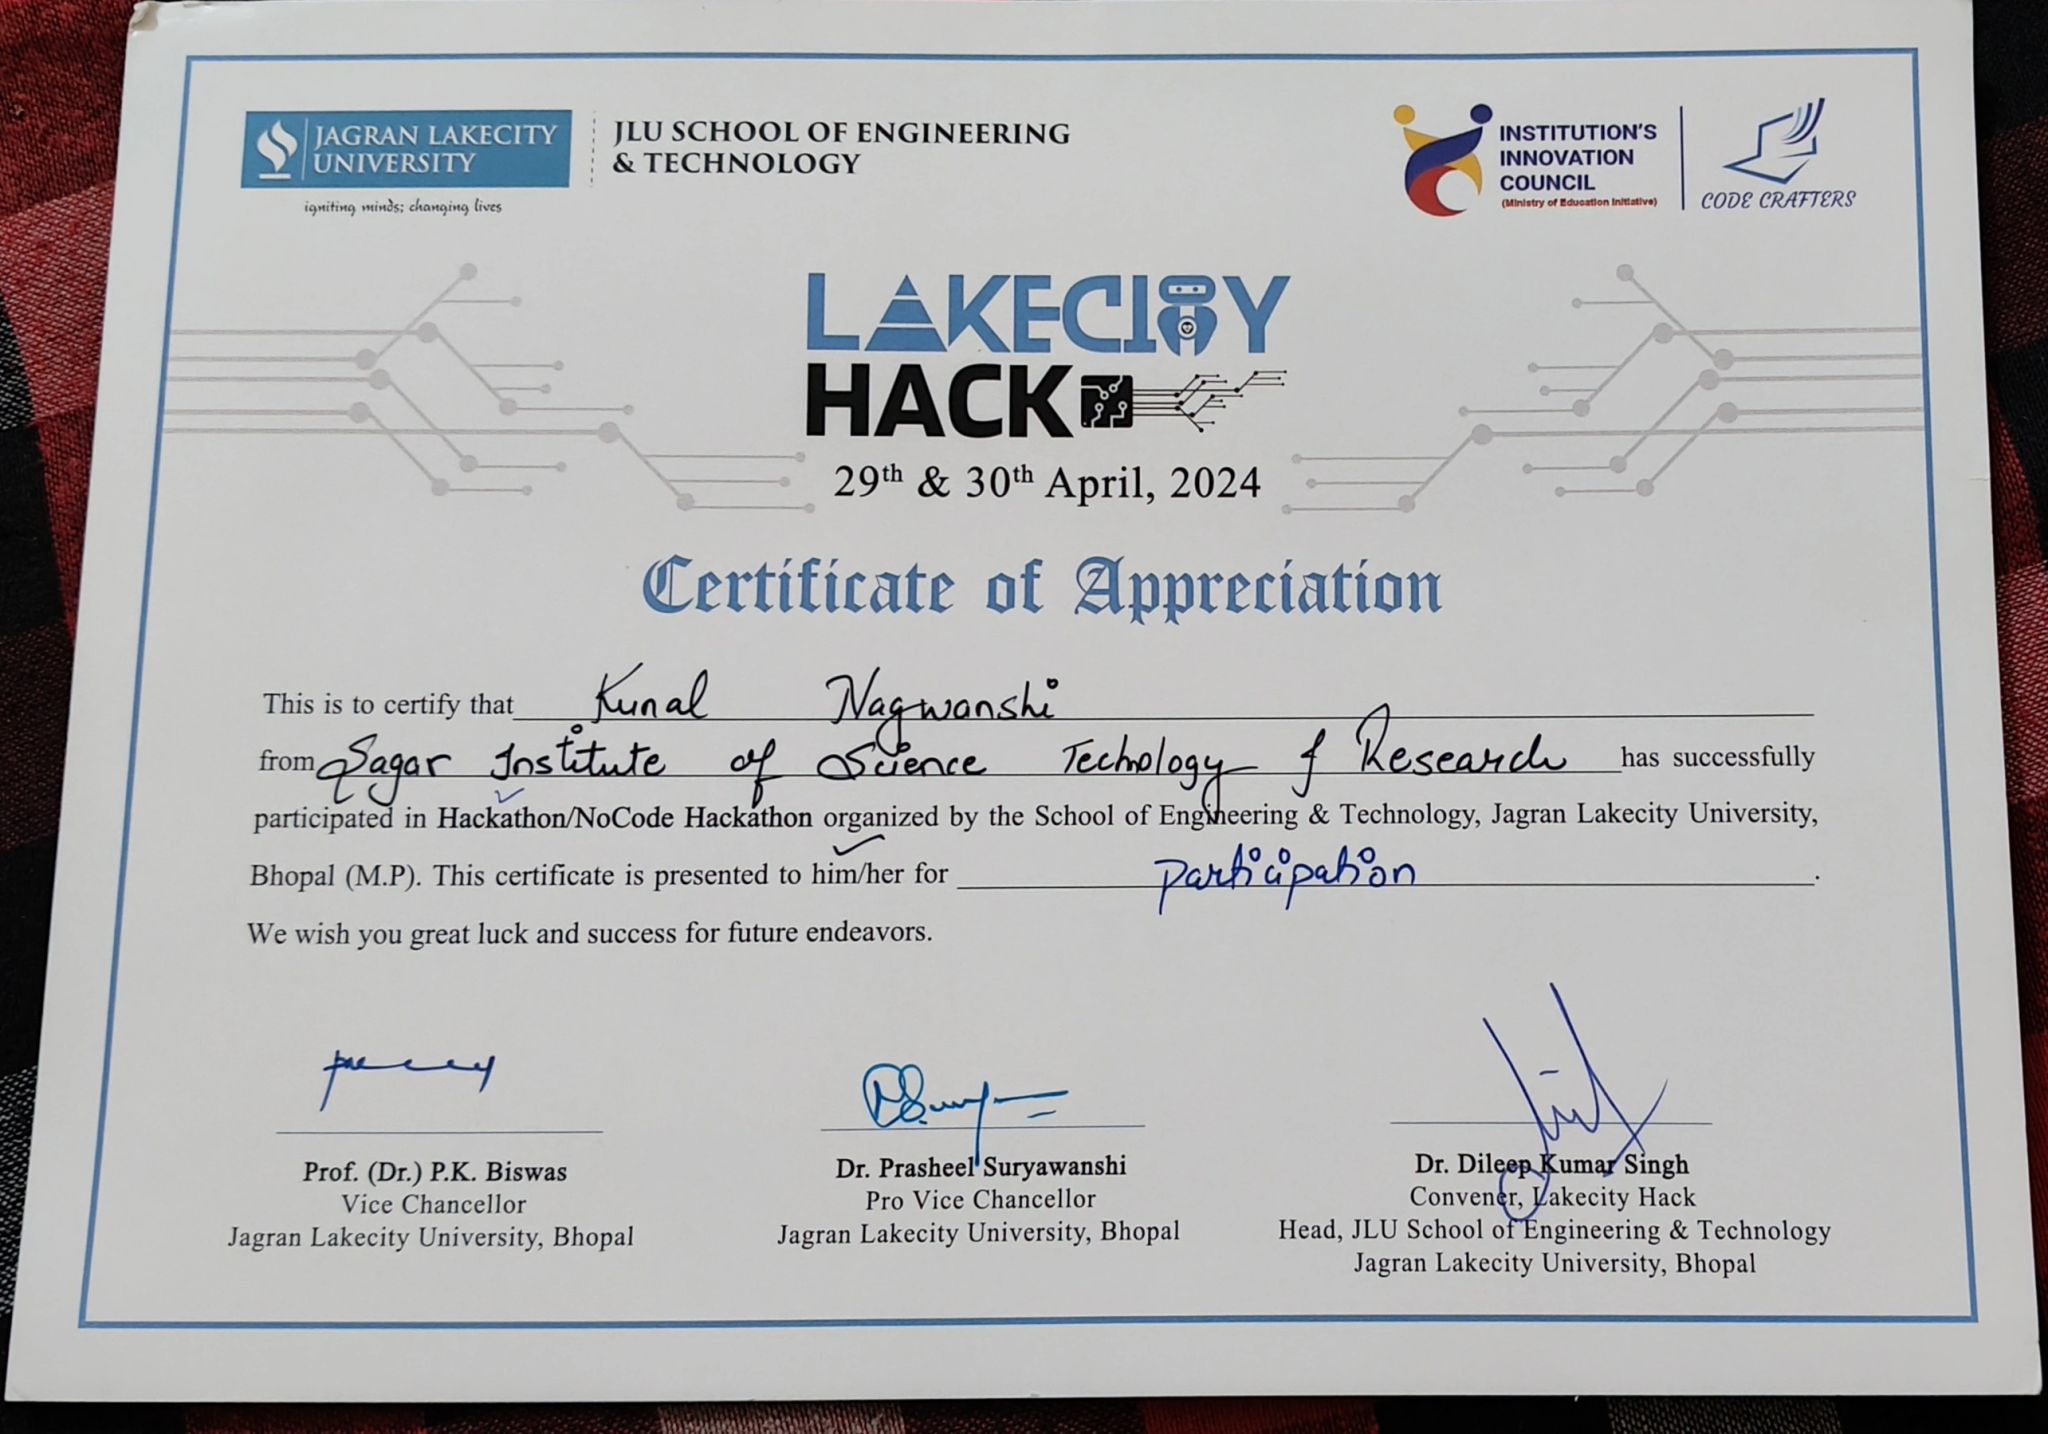 JAGRAN LAKECITY
UNIVERSITY
igniting minds; changing lives
JLU SCHOOL OF ENGINEERING
& TECHNOLOGY
INSTITUTION'S
INNOVATION
COUNCIL
(Ministry of Education Initiative)
CODE CRAFTERS
LAKECITY
HACK
29th & 30th April, 2024
Certificate of Appreciation
This is to certify that Kunal Nagwanshi
from Sagar Institute of Science Technology & Research has successfully
participated in Hackathon/NoCode Hackathon organized by the School of Engineering & Technology, Jagran Lakecity University,
Bhopal (M.P). This certificate is presented to him/her for Participation.
We wish you great luck and success for future endeavors.
Prof. (Dr.) P.K. Biswas
Vice Chancellor
Jagran Lakecity University, Bhopal
Dr. Prasheel Suryawanshi
Pro Vice Chancellor
Jagran Lakecity University, Bhopal
Dr. Dileep Kumar Singh
Convener, Lakecity Hack
Head, JLU School of Engineering & Technology
Jagran Lakecity University, Bhopal